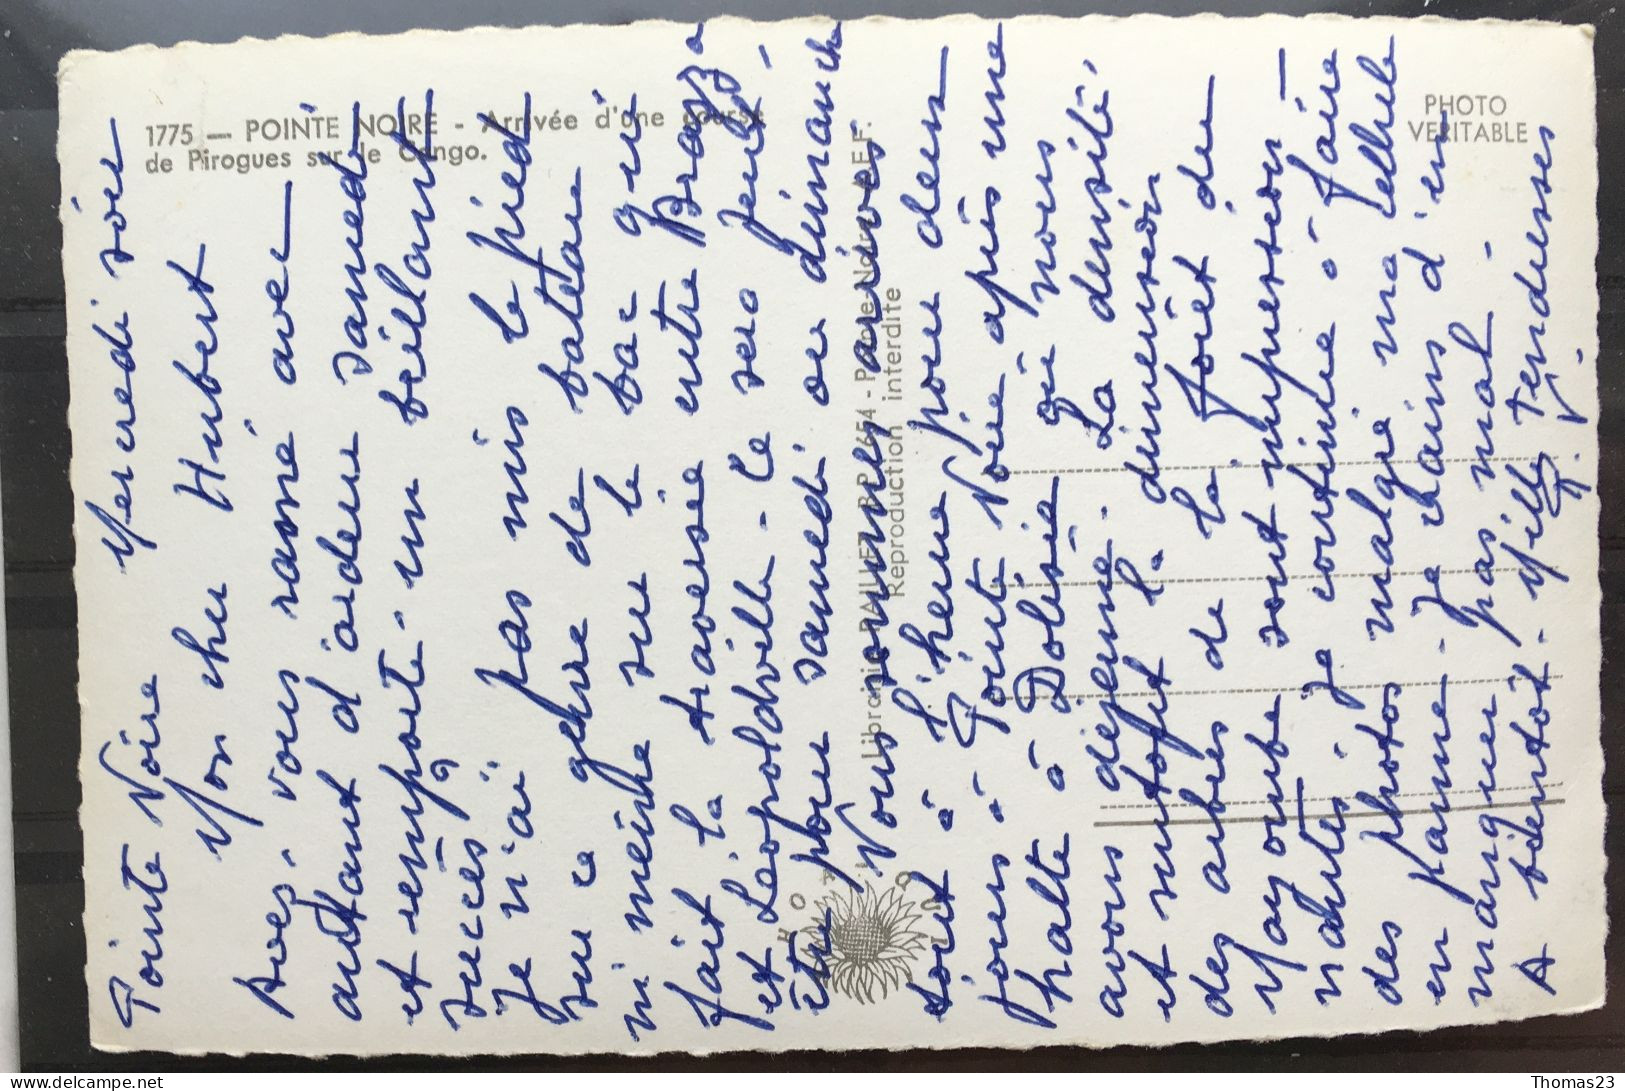 1775 — POINTE NOIRE - Arrivée d'une course
de Pirogues sur le Congo.
PHOTO
VERITABLE
Librairie PAILLET B.P. 654 - Pointe-Noire A.E.F.
Reproduction interdite
Pointe Noire Mercredi soir
Mon cher Hubert
Avez-vous ramé avec
autant d'ardeur samedi
et remporté un brillant
succès
Je n'ai pas mis le pied
sur ce genre de bateau
ni même sur le bac qui
fait la traversée entre Brazza
et Léopoldville - Ce sera peut-
être pour samedi ou dimanche
Nous sommes arrivés
tout à l'heure pour deux
jours à Pointe Noire après une
halte à Dolisie où nous
avons déjeuné. La densité,
et surtout la dimension
des arbres de la forêt du
Mayombe sont impression-
nantes. Je continue à faire
des photos malgré ma cellule
en panne. Je crains d'en
manquer pas mal -
A bientôt. Mille Tendresses
Thomas23